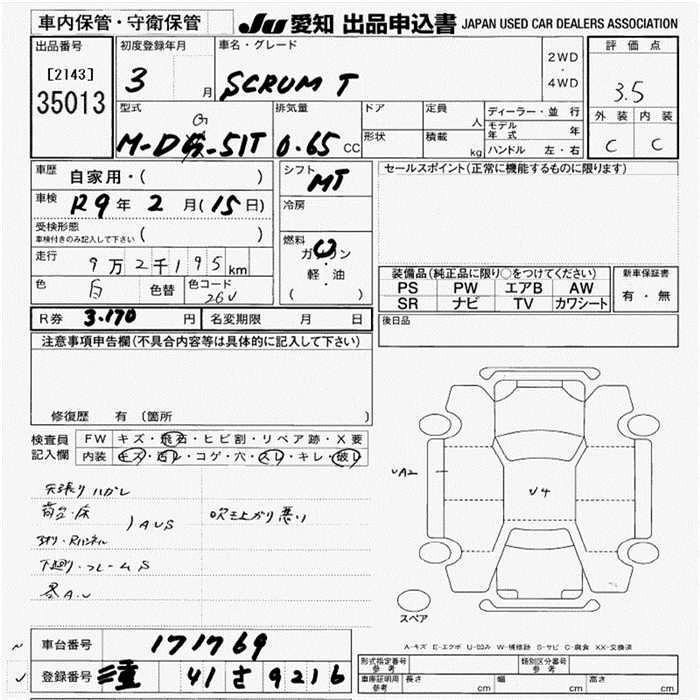 車内保管・守衛保管
JU 愛知 出品申込書 JAPAN USED CAR DEALERS ASSOCIATION
出品番号
[2143]
35013
初度登録年月
3 月
車名・グレード
SCRUM T
2WD
・
4WD
評価点
3.5
外装 内装
C C
型式
排気量
0.65 CC
ドア
形状
定員 人
積載 kg
ディーラー・並行
モデル年式 年
ハンドル 左・右
車歴
自家用・( )
車検 R9年 2月(15日)
受検形態
車検付きのみ記入して下さい ( )
走行 9万2千195km
色 白 色替 色コード 26U
シフト MT
冷房
燃料
ガソリン
・
軽・油
( )
セールスポイント(正常に機能するものに限ります)
装備品(純正品に限り○をつけてください)
PS PW エアB AW
SR ナビ TV カワシート
新車保証書
有・無
後日品
R券 3.170 円 名変期限 月 日
注意事項申告欄(不具合内容等は具体的に記入して下さい)
修復歴 有 (箇所 )
検査員記入欄
FW キズ・飛石・ヒビ割・リペア跡・X要
内装 キズ・汚レ・コゲ・穴・スレ・キレ・破レ
天張りハガレ
荷台・床
AUS
吹き上がり悪い
下廻り・フレームS
UA2
U4
スペア
A-キズ E-エクボ U-凹み W-補修跡 S-サビ C-腐食 XX-交換済
車台番号 171769
登録番号 三重 41 さ 9216
形式指定番号 参考
類別区分番号 参考
車庫証明用 参考 長さ cm 幅 cm 高さ cm